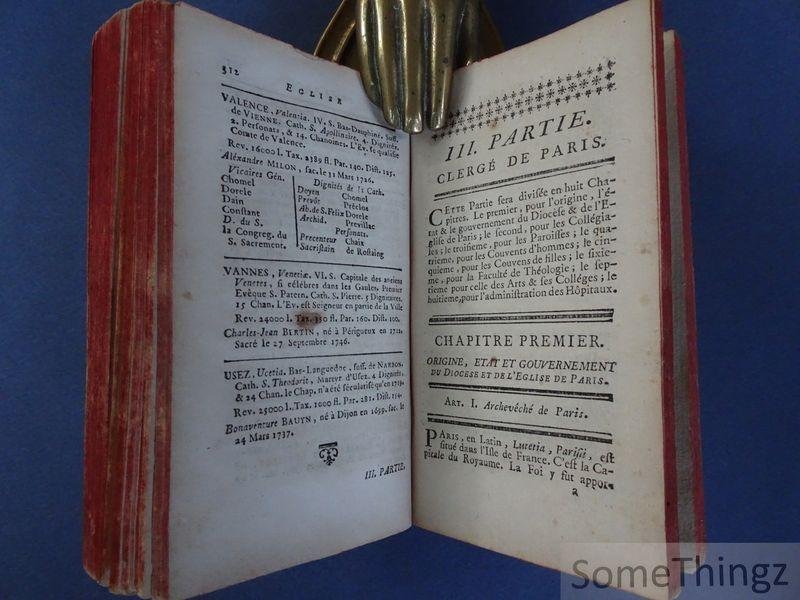 312
EGLISE
VALENCE, Valentia. IV. S. Bas-Dauphiné. Suff.
de VIENNE. Cath. S. Apollinaire. 4. Dignités,
2. Personats, & 14. Chanoines. L'Ev. se qualifie
Comte de Valence.
Rev. 16000 l. Tax. 2389 fl. Par. 140. Dist. 125.
Aléxandre MILON, sac. le 31 Mars 1726.
Vicaires Gén.
Chomel
Dorele
Dain
Constant
D. du S.
la Congreg. du
S. Sacrement.
Dignités de la Cath.
Doyen Chomel
Prevôt Préclos
Ab. de S. Felix Dorele
Archid. Previllac
Personats.
Precenteur Chaix
Sacristain de Rostaing
VANNES, Venetiæ. VI. S. Capitale des anciens
Venetes, si célébres dans les Gaules. Premier
Evêque S. Patern. Cath. S. Pierre. 5 Dignitaires.
15 Chan. L'Ev. est Seigneur en partie de la Ville
Rev. 24000 l. Tax. 350 fl. Par. 160. Dist. 100.
Charles-Jean BERTIN, né à Périgueux en 1712.
Sacré le 27 Septembre 1746.
USEZ, Ucetia. Bas-Languedoc, suff. de NARBON.
Cath. S. Theodorit, Martyr d'Usez. 4 Dignités,
& 24 Chan. le Chap. n'a été sécularisé qu'en 1719.
Rev. 25000 l. Tax. 1000 fl. Par. 281. Dist. 154.
Bonaventure BAUYN, né à Dijon en 1699. sac. le
24 Mars 1737.
III. PARTIE.
III. PARTIE.
CLERGÉ DE PARIS.
CETTE Partie sera divisée en huit Cha-
pitres. Le premier, pour l'origine, l'é-
tat & le gouvernement du Diocèse & de l'E-
glise de Paris; le second, pour les Collégia-
les; le troisiéme, pour les Paroisses; le qua-
triéme, pour les Couvents d'hommes; le cin-
quieme, pour les Couvens de filles; le sixie-
me, pour la Faculté de Théologie; le sep-
tieme pour celle des Arts & ses Colléges; le
huitieme, pour l'administration des Hôpitaux.
CHAPITRE PREMIER.
ORIGINE, ETAT ET GOUVERNEMENT
DU DIOCESE ET DE L'EGLISE DE PARIS.
ART. I. Archevêché de Paris.
PARIS, en Latin, Lutetia, Parisii, est
situé dans l'Isle de France. C'est la Ca-
pitale du Royaume. La Foi y fut appor-
a
SomeThingz